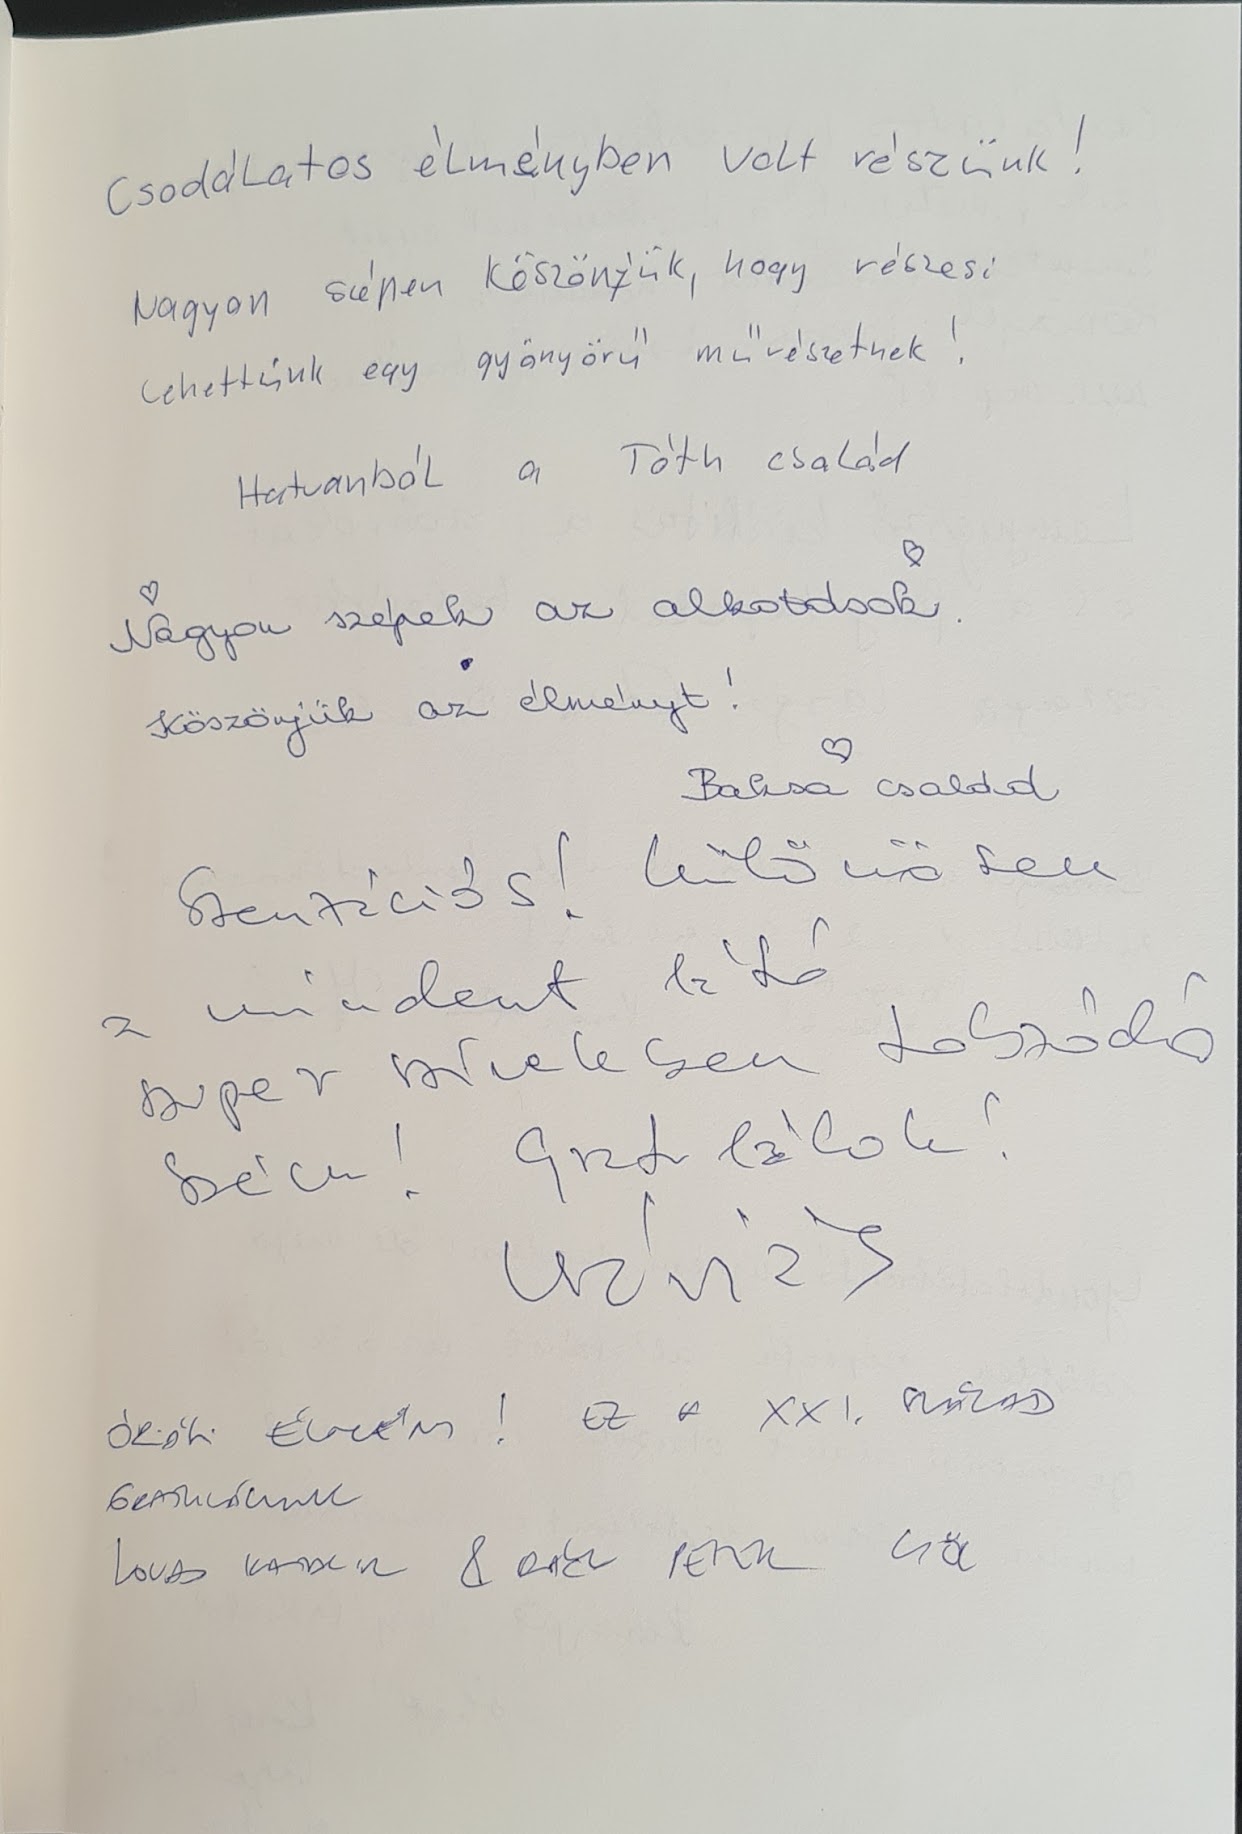 Csodálatos élményben volt részünk!
Nagyon szépen köszönjük, hogy részesi
lehettünk egy gyönyörű művészetnek!
Hatvanból a Tóth család
Nagyon szépek az alkotások.
Köszönjük az élményt!
Baksa család
Szenzációs! Különösen
a mindent látó
szuper szívélyesen
Gratulálok!
Óriási élmény! Ez a XXI. század
Gratulálunk
Lovas & Péter